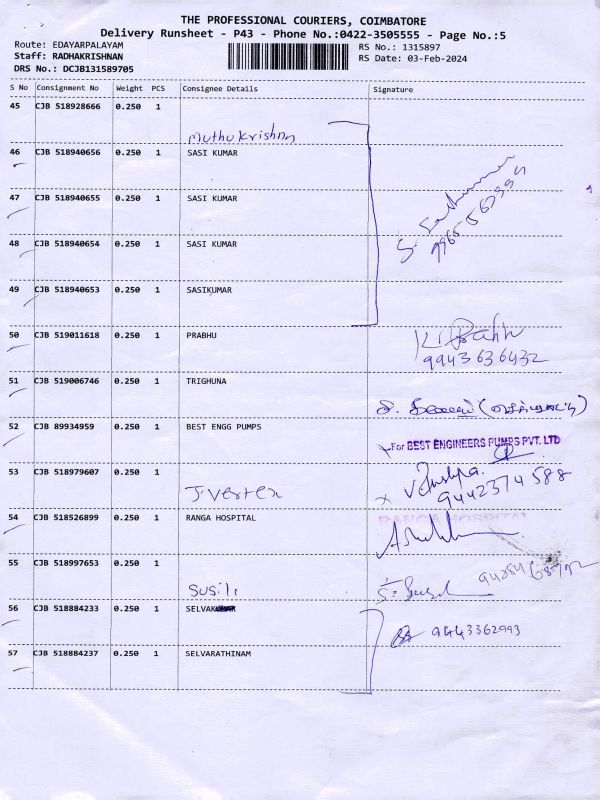 THE PROFESSIONAL COURIERS, COIMBATORE
Delivery Runsheet - P43 - Phone No.:0422-3505555 - Page No.:5
Route: EDAYARPALAYAM
Staff: RADHAKRISHNAN
DRS No.: DCJB131589705
RS No.: 1315897
RS Date: 03-Feb-2024
S No Consignment No Weight PCS Consignee Details Signature
45 CJB 518928666 0.250 1
Muthukrishnan
46 CJB 518940656 0.250 1 SASI KUMAR
47 CJB 518940655 0.250 1 SASI KUMAR
48 CJB 518940654 0.250 1 SASI KUMAR
49 CJB 518940653 0.250 1 SASIKUMAR
50 CJB 519011618 0.250 1 PRABHU
9943636432
51 CJB 519006746 0.250 1 TRIGHUNA
52 CJB 89934959 0.250 1 BEST ENGG PUMPS
For BEST ENGINEERS PUMPS PVT. LTD
53 CJB 518979607 0.250 1
J. Vertex
9442374588
54 CJB 518526899 0.250 1 RANGA HOSPITAL
RANGA HOSPITAL
55 CJB 518997653 0.250 1
Susili
56 CJB 518884233 0.250 1 SELVAKUMAR
9443362993
57 CJB 518884237 0.250 1 SELVARATHINAM